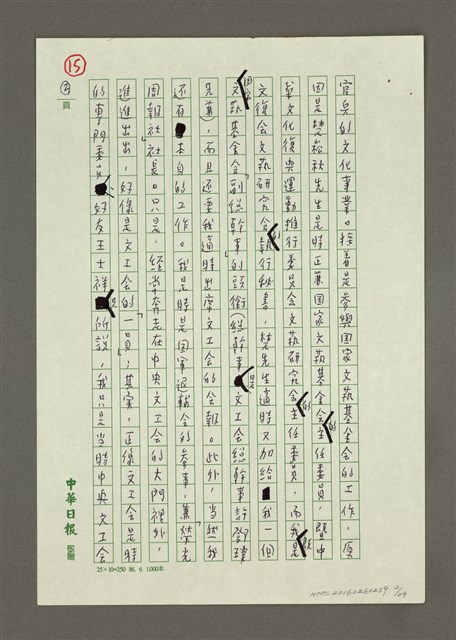 ⑮
②
頁
官兵的文化事業。接着是參與国家文執基金会的工作,原
因是楚崧秋先生是時正兼国家文執基金会的主任委員,暨中
華文化復興運動推行委員会文執研究会的主任委員,而我是
文復会文執研究会的執行秘書,楚先生適時又加給我一個
国家文執基金会「副總幹事」的頭銜(總幹事是文工会總幹事許鄧璞
兄兼),而且还要我適時出席文工会的会報。此外,当然我
还有本身的工作。我是時是国軍退輔会的參事,兼「榮光
周報社」社長。只是,經常奔走在中央文工会的大門裡外,
進進出出,好像是文工会的「一員」;其實,正像文工会是時
的專門委員好友王士祥兄所說,我只是当時中央文工会
中華日報
敬贈
25×10=250 86. 6. 1,000本
NMTL20160260239 2/29